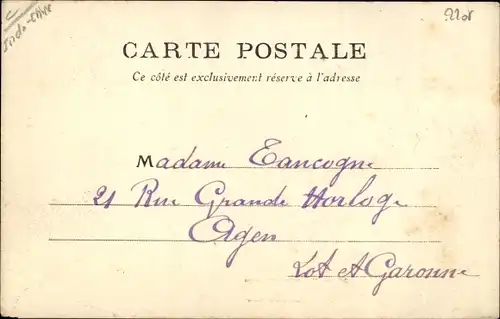 Indo-Chine
CARTE POSTALE
Ce côté est exclusivement réservé à l'adresse
Madame Cancogne
21 Rue Grande Horloge
Agen
Lot et Garonne